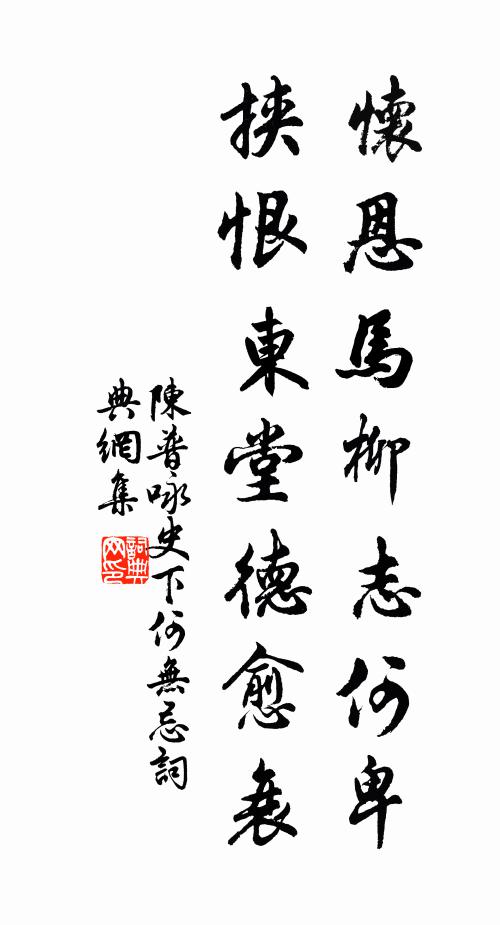 懷恩馬柳志何卑
挾恨東堂德愈衰
陳普咏史下何無忌詞
典網集
詞典網印